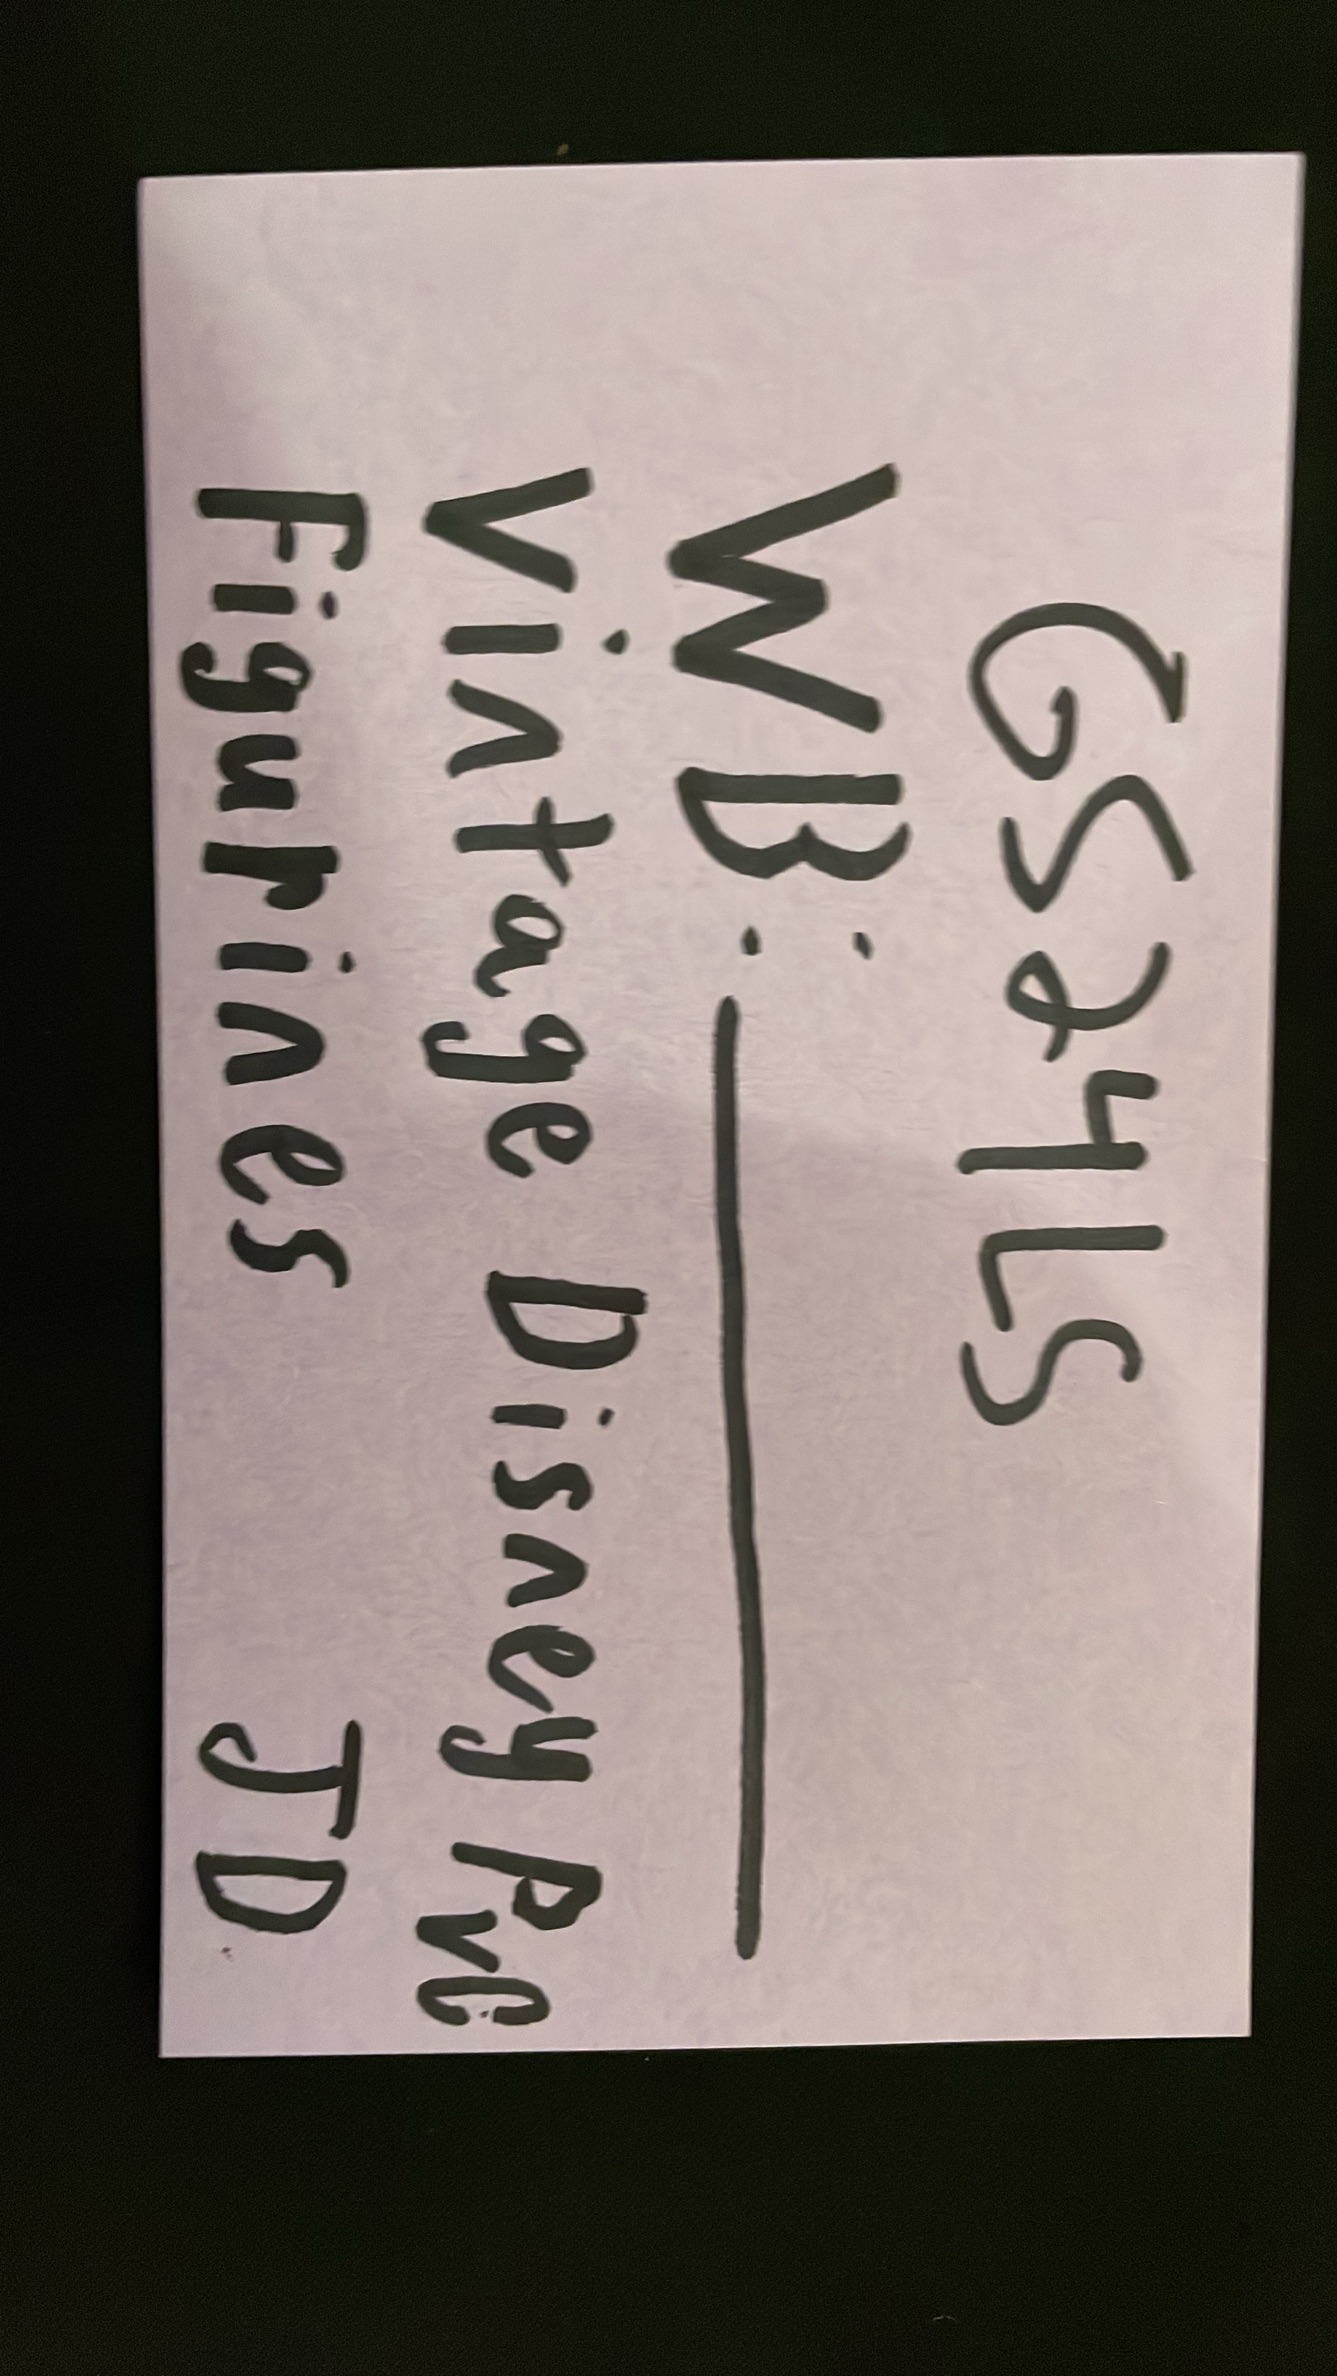 GS24LS
WB: ________
Vintage Disney PVC
Figurines JD